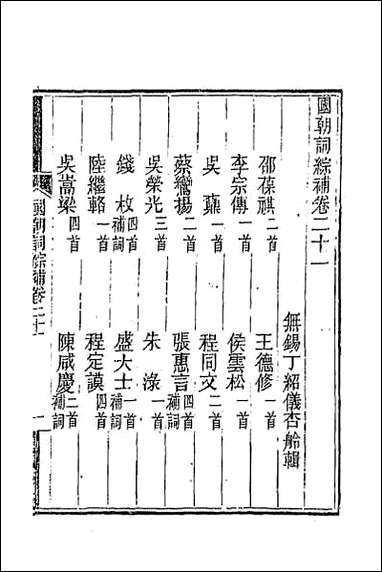 國朝詞綜補卷二十一
無錫丁紹儀杏舲輯
邵葆祺二首 王德修一首
李宗傳一首 侯雲松一首
吳鼒一首 程同文二首
蔡鑾揚二首 張惠言四首補詞
吳榮光三首 朱淥一首
錢枚一首補詞 盛大士一首補詞
陸繼輅一首 程定謨四首
吳嵩梁四首 陳咸慶二首補詞
國朝詞綜補卷二十一 一